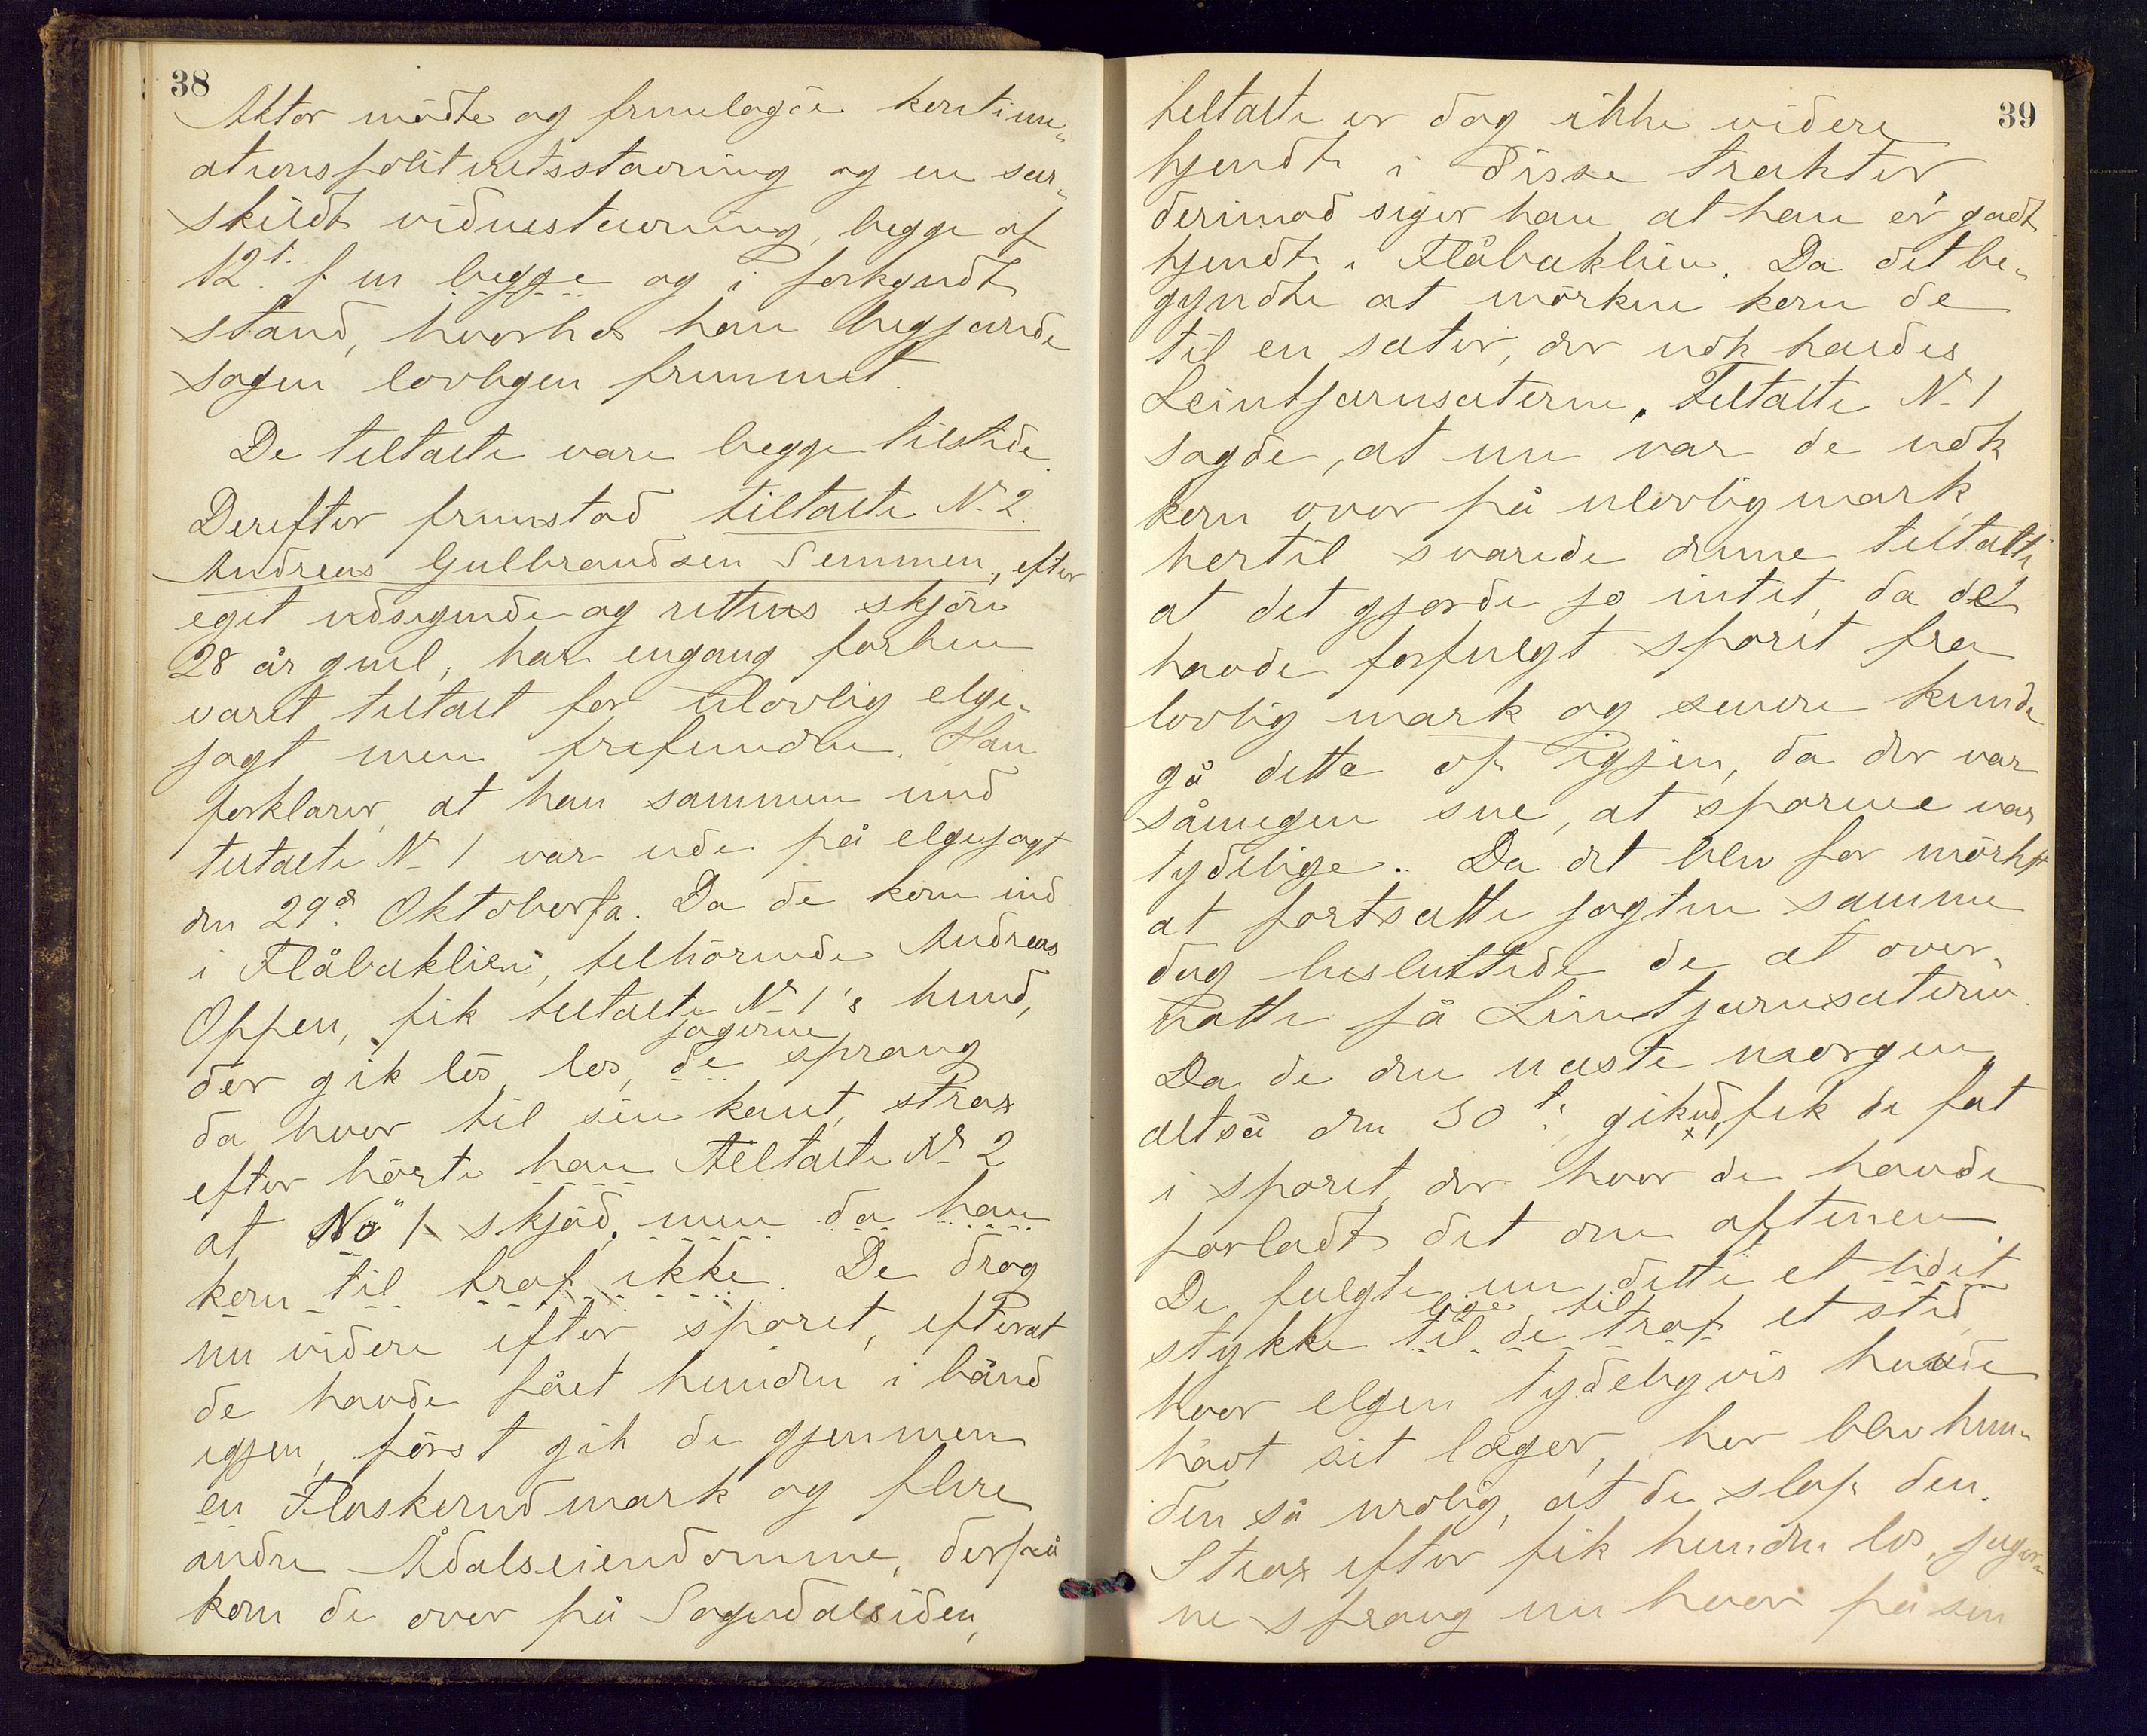 38
Aktor mödte og fremlagde kontinu„
ationspolitiretsstævning og en sær„
skildt vidnestævning, begge af
12t. f m begge og i forkyndt
stand, hvorhos han begjærede
sagen lovligen fremmet.
De tiltalte vare begge tilstede.
Derefter fremstod tiltalte No 2.
Andreas Gulbrandsen Semmen, efter
eget udsigende og rettens skjön
28 år gml, har engang forhen
været tiltalt for ulovlig elge„
jagt men frifunden. Han
forklarer, at han sammen med
tiltalte No 1 var ude på elgejagt
den 29de Oktober fa. Da de kom ind
i Flåbaklien, tilhörende Andreas
Oppen, fik tiltalte No 1's hund,
jagerne
der gik lös, los, de sprang
da hver til sin kant, strax
efter hörte han tiltalte No 2
at No 1 skjöd, men da han
kom til traf ikke. De drog
nu videre efter sporet, efterat
de havde fået hunden i bånd
igjen, först gik de gjennem
en Flaskerudmark og flere
andre Ådalseiendomme, derpå
kom de over på Sognedalsiden,
39
tiltalte er dog ikke videre
kjendt i disse trakter,
derimod siger han at han er godt
kjendt i Flåbaklien. Da det be„
gyndte at mörkne kom de
til en sæter, der nok hedes
Leintjernsæteren. Tiltalte No 1
sagde, at nu var de nok
kom over på ulovlig mark,
hertil svarede denne tiltalte
at det gjorde jo intet, da de
havde forfulgt sporet fra
lovlig mark og senere kunde
gå dette op igjen, da der var
såmegen sne, at sporene var
tydelige. Da det blev for mörkt
at fortsætte jagten samme
dag besluttede de at over„
natte på Leintjernsæteren.
Da de den næste morgen
altså den 30t: gik ud, fik de fat
i sporet, der hvor de havde
forladt det om aftenen
De fulgte nu dette et lidet
lige til
stykke til de traf et sted,
hvor elgen tydeligvis havde
havt sit læger, her blev hun„
den så urolig, at de slap den.
Strax efter fik hunden los, jæger„
ne sprang nu hver på sin